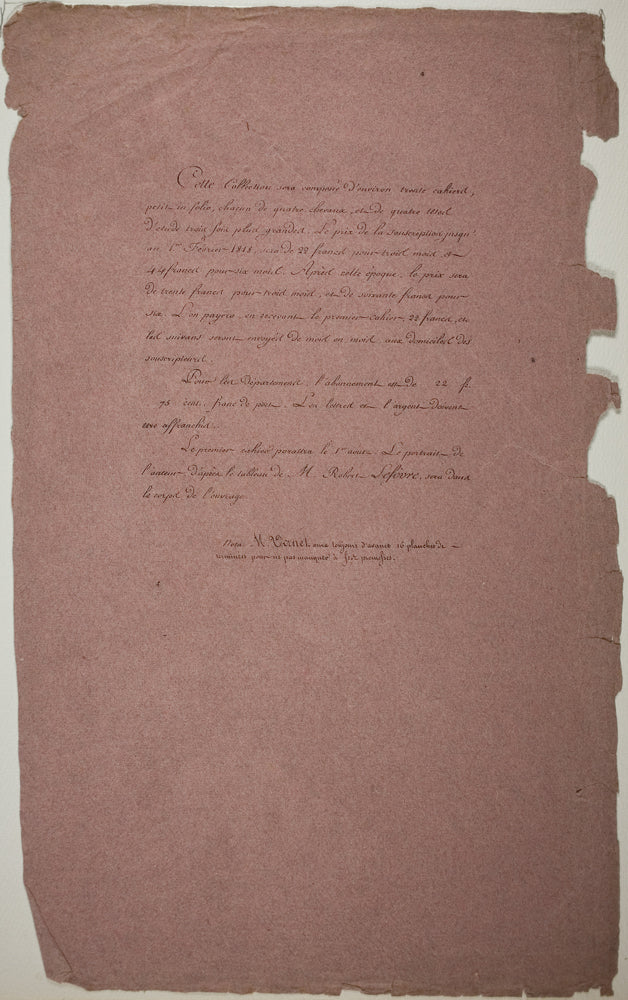 Cette Collection sera composée d'environ trente cahiers,
petit in folio, chacun de quatre chevaux, et de quatre têtes
d'étude trois fois plus grandes. Le prix de la souscription jusqu'
au 1er Février 1818, sera de 22 francs pour trois mois &
44 francs pour six mois. Après cette époque, le prix sera
de trente francs pour trois mois, et de soixante francs pour
six. L'on payera, en recevant le premier cahier, 22 francs, et
les suivans seront envoyés de mois en mois, aux domiciles des
souscripteurs.
Pour les Départemens, l'abonnement est de 22 f.
75 cent. franc de port. Les lettres et l'argent doivent
être affranchis.
Le premier cahier paraîtra le 1er août. Le portrait de
l'auteur d'après le tableau de M. Robert Lefèvre, sera dans
le corps de l'ouvrage.
Nota. M. Vernet aura toujours d'avance 16 planches de
terminées pour ne pas manquer à ses promesses.